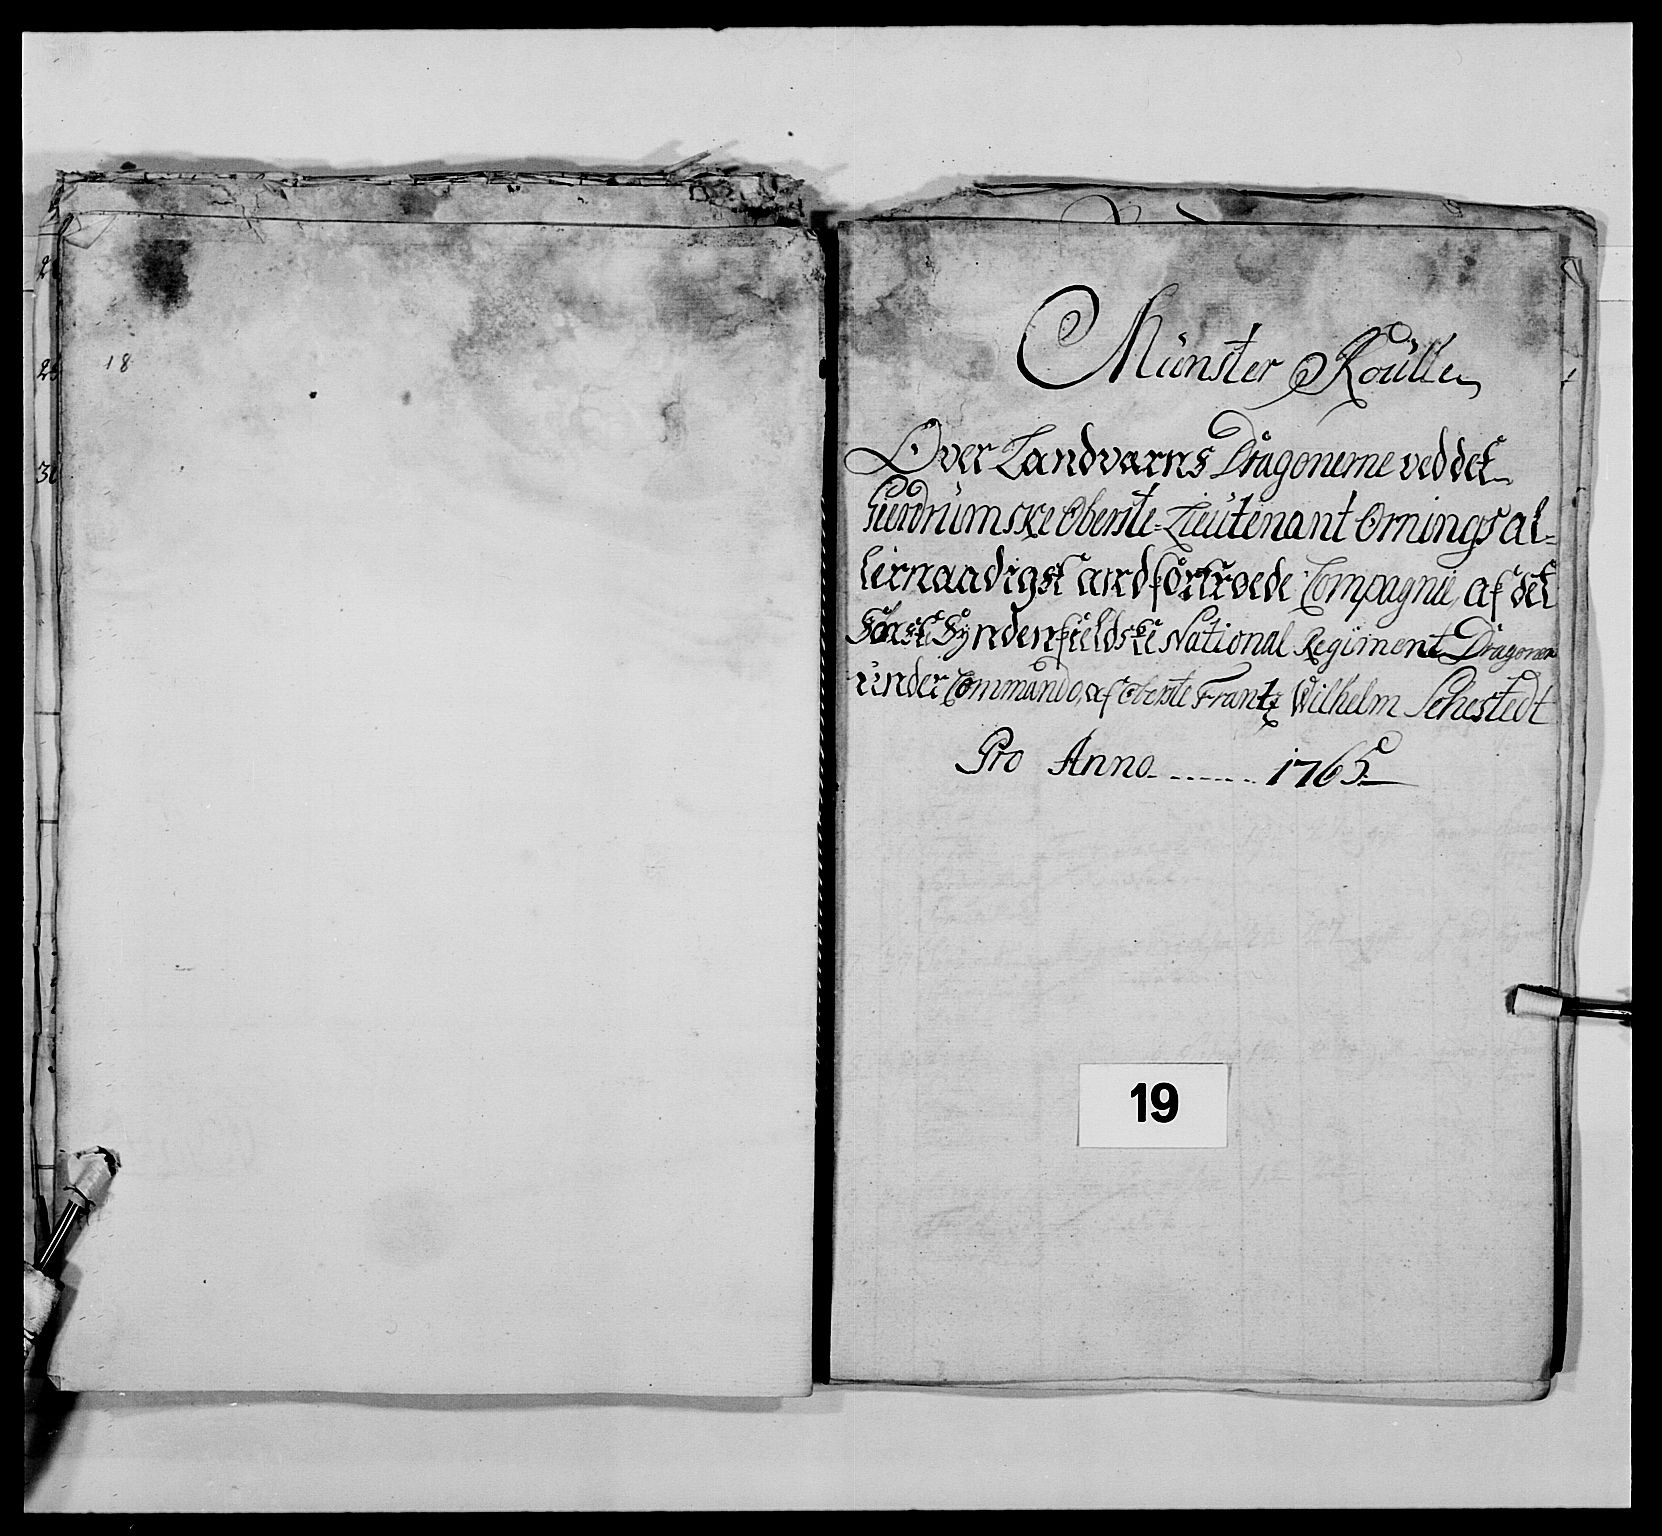 2
25
30
18
Münster Roülle
Over Landværns Dragonerne ved det
Gierdrumske Oberste-Lieutenant Ornings al-
lernaadigst andfortroede Compagnie, af det
Første Syndenfieldske National Regiment Dragoner
under Commando, af Oberste Frantz Wilhelm Sehestedt
Pro Anno ....... 1765
19